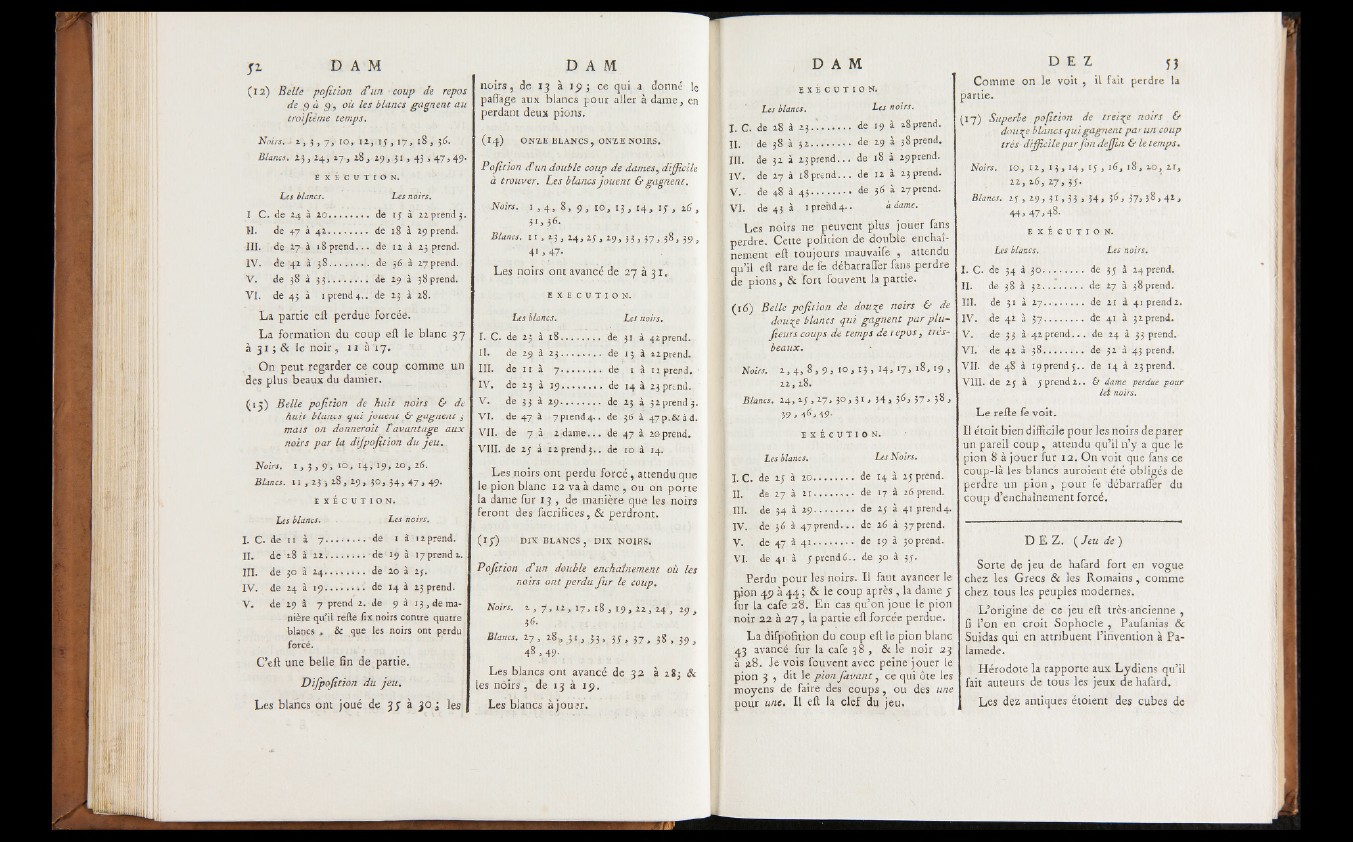 52 D A M
(12) Belle poſition d'un coup de repos
de 9 à 9, où les blancs gagnent au
troiſième temps.
Noirs. 2, 3, 7, 10, 12, 15, 17, 18, 36.
Blancs. 23, 24, 27, 28, 29, 31, 43, 47, 49.
EXÉCUTION.
Les blancs. Les noirs.
I C. de 24 à 20........ de 15 à 22 prend 3.
II. de 47 à 42........ de 18 à 29 prend.
III. de 27 à 18 prend... de 12 à 23 prend.
IV. de 42 à 38........ de 36 à 27 prend.
V. de 38 à 33........ de 29 à 38 prend.
VI. de 43 à 1 prend 4.. de 23 à 28.
La partie eſt perdue forcée.
La formation du coup eſt le blanc 37
à 31; & le noir, 11 à 17.
On peut regarder ce coup comme un
des plus beaux du damier.
(13) Belle poſition de huit noirs & de
huit blancs qui jouent & gagnent;
mais on donneroit l'avantage aux
noirs par la diſpoſition du jeu.
Noirs. 1, 3, 9, 10, 14, 19, 20, 26.
Blancs. 11, 23, 28, 29, 30, 34, 47, 49.
EXÉCUTION.
Les blancs. Les noirs.
I. C. de 11 à 7........ de 1 à 12 prend.
II. de 28 à 22........ de 19 à 17 prend 2.
III. de 30 à 24........ de 20 à 25.
IV. de 24 à 19........ de 14 à 23 prend.
V. de 29 à 7 prend 2. de 9 à 13, de ma-
nière qu'il reſte ſix noirs contre quatre
blancs, & que les noirs ont perdu
forcé.
C'eſt une belle fin de partie.
Diſpoſition du jeu.
Les blancs ont joué de 35 à 30; les
D A M
noirs, de 13 à 19; ce qui a donné le
paſſage aux blancs pour aller à dame, en
perdant deux pions.
(14) ONZE BLANCS, ONZE NOIRS.
Poſition d'un double coup de dames, difficile
à trouver. Les blancs jouent & gagnent.
Noirs. 1, 4, 8, 9, 10, 13, 14, 15, 26,
31, 36.
Blancs. 11, 23, 24, 25, 29, 33, 37, 38, 39,
41, 47.
Les noirs ont avancé de 27 à 31.
EXÉCUTION.
Les blancs. Les noirs.
I. C. de 23 à 18........ de 31 à 42 prend.
II. de 29 à 23........ de 13 à 22 prend.
III. de 11 à 7........ de 1 à 12 prend.
IV. de 23 à 19........ de 14 à 23 prend.
V. de 33 à 29........ de 23 à 32 prend 3.
VI. de 47 à 7 prend 4.. de 36 à 47 p. & à d.
VII. de 7 à 2 dame... de 47 à 20 prend.
VIII. de 25 à 12 prend 3.. de 10 à 14.
Les noirs ont perdu forcé, attendu que
le pion blanc 12 va à dame, ou on porte
la dame ſur 13, de manière que les noirs
feront des ſacrifices, & perdront.
(15) DIX BLANCS, DIX NOIRS.
Poſition d'un double enchaînement où les
noirs ont perdu ſur le coup.
Noirs. 2, 7, 12, 17, 18, 19, 22, 24, 29,
36.
Blancs. 27, 28, 31, 33, 35, 37, 38, 39,
48, 49.
Les blancs ont avancé de 32 à 28; &
les noirs, de 13 à 19.
Les blancs à jouer.
D A M
EXÉCUTION.
Les blancs. Les noirs.
I. C. de 28 à 23........ de 19 à 28 prend.
II. de 38 à 32........ de 29 à 38 prend.
III. de 32 à 23 prend... de 18 à 29 prend.
IV. de 27 à 18 prend... de 12 à 23 prend.
V. de 48 à 43........ de 36 à 27 prend.
VI. de 43 à 1 prend 4.. à dame.
Les noirs ne peuvent plus jouer ſans
perdre. Cette poſition de double enchaî-
nement eſt toujours mauvaiſe, attendu
qu'il eſt rare de ſe débarraſſer ſans perdre
de pions, & fort ſouvent la partie.
(16) Belle poſition de douze noirs & de
douze blancs qui gagnent par plu-
ſieurs coups de temps de repos, très-
beaux.
Noirs. 2, 4, 8, 9, 10, 13, 14, 17, 18, 19,
22, 28.
Blancs. 24, 25, 27, 30, 31, 34, 36, 37, 38,
39, 46, 49.
EXÉCUTION.
Les blancs. Les Noirs.
I. C. de 25 à 20........ de 14 à 25 prend.
II. de 27 à 21........ de 17 à 26 prend.
III. de 34 à 29........ de 25 à 41 prend 4.
IV. de 36 à 47 prend... de 26 à 37 prend.
V. de 47 à 41........ de 19 à 30 prend.
VI. de 41 à 5 prend 6.. de 30 à 35.
Perdu pour les noirs. Il faut avancer le
pion 49 à 44; & le coup après, la dame 5
ſur la caſe 28. En cas qu'on joue le pion
noir 22 à 27, la partie eſt forcée perdue.
La diſpoſition du coup eſt le pion blanc
43 avancé ſur la caſe 38, & le noir 23
à 28. Je vois ſouvent avec peine jouer le
pion 3, dit le pion ſavant, ce qui ôte les
moyens de faire des coups, ou des une
pour une. Il eſt la clef du jeu.
D E Z 53
Comme on le voit, il fait perdre la
partie.
(17) Superbe poſition de treize noirs &
douze blancs qui gagnent par un coup
très difficile par ſon deſſin & le temps.
Noirs. 10, 12, 13, 14, 15, 16, 18, 20, 21,
22, 26, 27, 35.
Blancs. 25, 29, 31, 33, 34, 36, 37, 38, 42,
44, 47, 48.
EXÉCUTION.
Les blancs. Les noirs.
I. C. de 34 à 30........ de 35 à 24 prend.
II. de 38 à 32........ de 27 à 38 prend.
III. de 31 à 27........ de 21 à 41 prend 2.
IV. de 42 à 37........ de 41 à 32 prend.
V. de 33 à 42 prend... de 24 à 33 prend.
VI. de 42 à 38........ de 32 à 43 prend.
VII. de 48 à 19 prend 5.. de 14 à 23 prend.
VIII. de 25 à 5 prend 2.. & dame perdue pour
les noirs.
Le reſte ſe voit.
Il étoit bien difficile pour les noirs de parer
un pareil coup, attendu qu'il n'y a que le
pion 8 à jouer ſur 12. On voit que ſans ce
coup-là les blancs auroient été obligés de
perdre un pion, pour ſe débarraſſer du
coup d'enchaînement forcé.
D E Z. (Jeu de)
Sorte de jeu de haſard fort en vogue
chez les Grecs & les Romains, comme
chez tous les peuples modernes.
L'origine de ce jeu eſt très-ancienne,
ſi l'on en croit Sophocle, Pauſanias &
Suidas qui en attribuent l'invention à Pa-
lamede.
Hérodote la rapporte aux Lydiens qu'il
fait auteurs de tous les jeux de haſard.
Les dez antiques étoient des cubes de